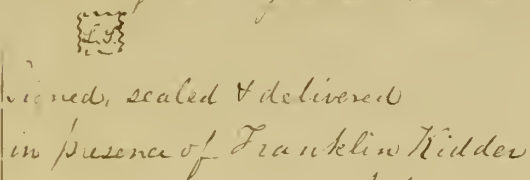 L.S.
Signed, sealed & delivered
in presence of Franklin Kidder